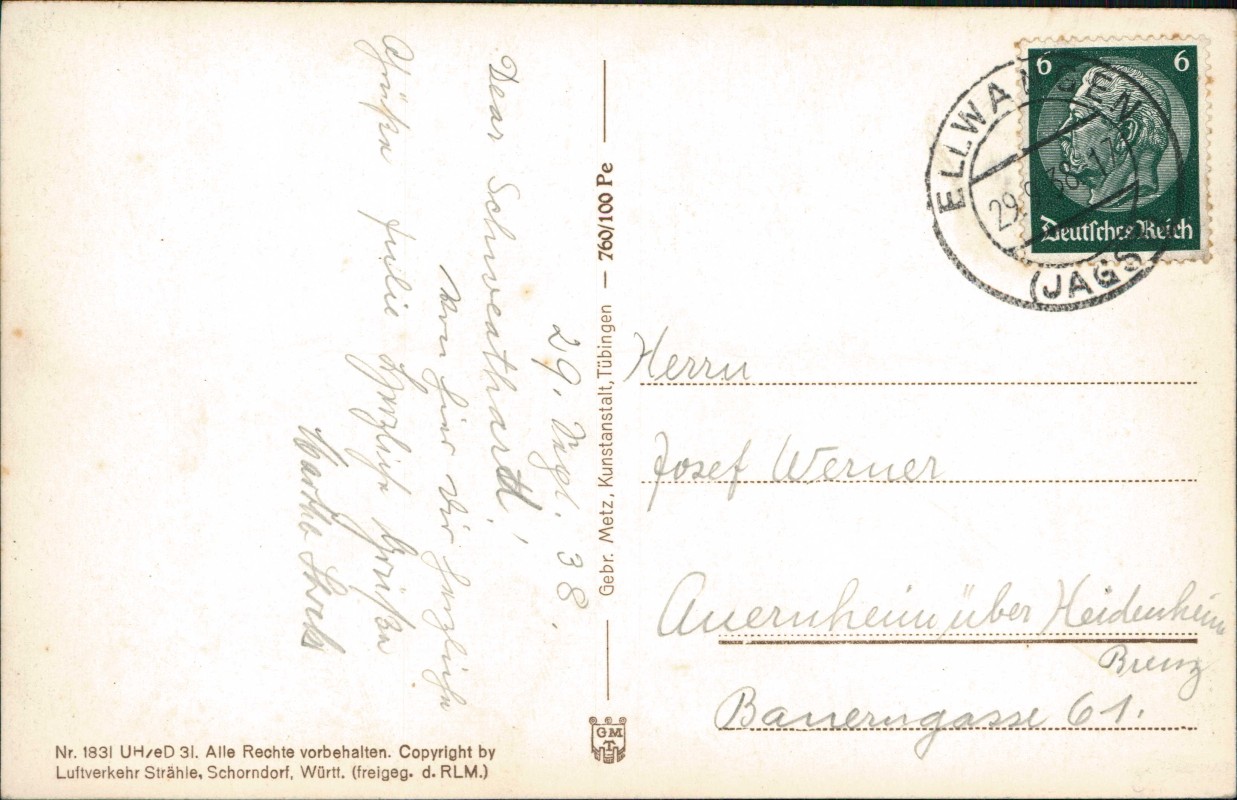 29. Sept. 38.
Dear Schweathardt!
Von hier Dir herzliche
Grüße Julie Herzliche Grüße
Martha
Gebr. Metz, Kunstanstalt, Tübingen — 760/100 Pe
6 6
Deutsches Reich
ELLWANGEN
29.9.38.-17
(JAGST)
Herrn
Josef Werner
Auernheim über Heidenheim
Brenz
Bauerngasse 61.
GM
T
Nr. 1831 UH/eD 31. Alle Rechte vorbehalten. Copyright by
Luftverkehr Strähle, Schorndorf, Württ. (freigeg. d. RLM.)